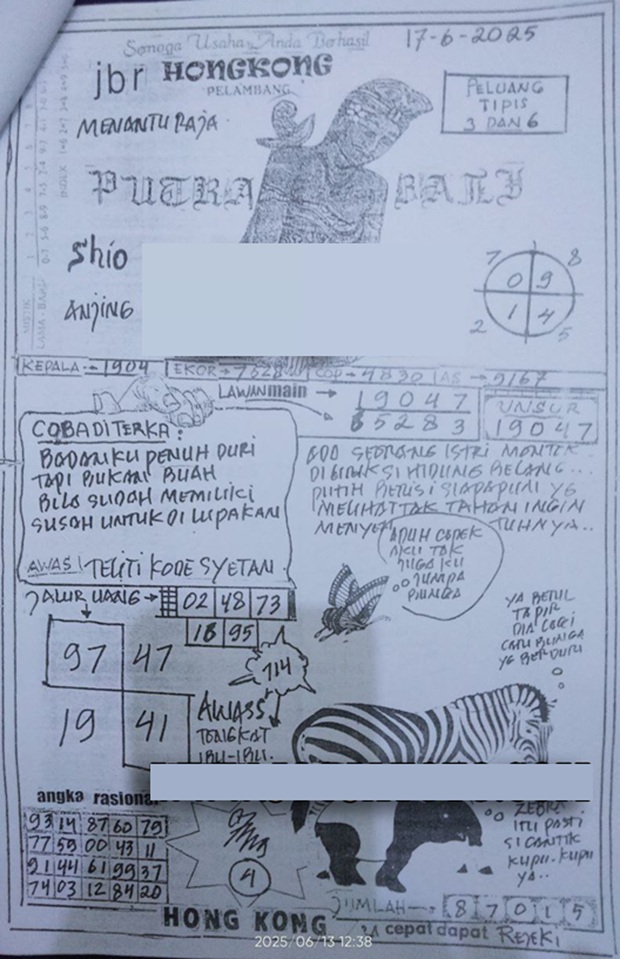 Semoga Usaha Anda Berhasil
17-6-2025
jbr HONGKONG
PELAMBANG
MENANTU RAJA
PELUANG
TIPIS
3 DAN 6
PUTRA BALI
Shio
ANJING
7 8
0 9
1 4
2 5
KEPALA 1904 EKOR 7528 COP 4830 AS 9167
LAWAN main
19047
65283
UNSUR
19047
COBA DITERKA:
BADANKU PENUH DURI
TAPI BUKAN BUAH
BILA SUDAH MEMILIKI
SUSAH UNTUK DI LUPAKAN
AWAS! TELITI KODE SYETAN
ADO SEORANG ISTRI MONTOK
HIDUNG BELANG...
PUTIH BETIS SIAPAPUN YG
MELIHAT TAK TAHAN INGIN
ADUH CAPEK
AKU TAK
JUGA KU
JUMPA
BUNGA
JALUR UANG 02 48 73
18 95
97 47
19 41
714
AWASS
TONGKAT
IBU-IBU.
YA BETUL
TAPIR
DIA CARI
BUNGA
YG BERDURI
angka rasional
93 14 87 60 79
77 59 00 43 11
91 44 61 99 37
74 03 12 84 20
4
ZEBRA
ITU PASTI
SI CANTIK
KUPU-KUPU
YA..
JUMLAH 8 7 0 1 5
HONG KONG
cepat dapat REJEKI
2025/06/13 12:38